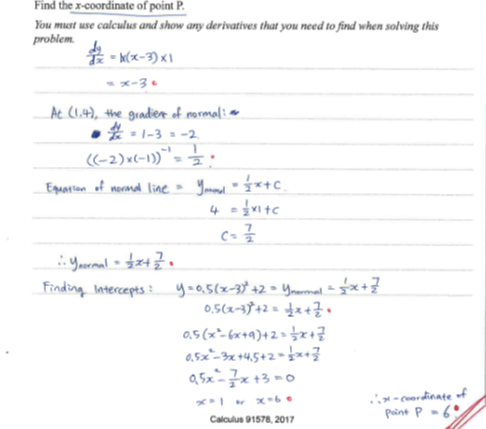 Find the x-coordinate of point P.
You must use calculus and show any derivatives that you need to find when solving this
problem.
dy/dx = (x-3)×1
= x-3
At (1,4), the gradient of normal:
dy/dx = 1-3 = -2
((-2)×(-1))⁻¹ = 1/2
Equation of normal line = y_normal = 1/2x+C
4 = 1/2×1+C
C = 7/2
∴ y_normal = 1/2x+7/2
Finding Intercepts: y=0.5(x-3)²+2 = y_normal = 1/2x+7/2
0.5(x-3)²+2 = 1/2x+7/2
0.5(x²-6x+9)+2 = 1/2x+7/2
0.5x²-3x+4.5+2 = 1/2x+7/2
0.5x²-7/2x+3=0
x=1 or x=6
∴ x-coordinate of
point P = 6
Calculus 91578, 2017